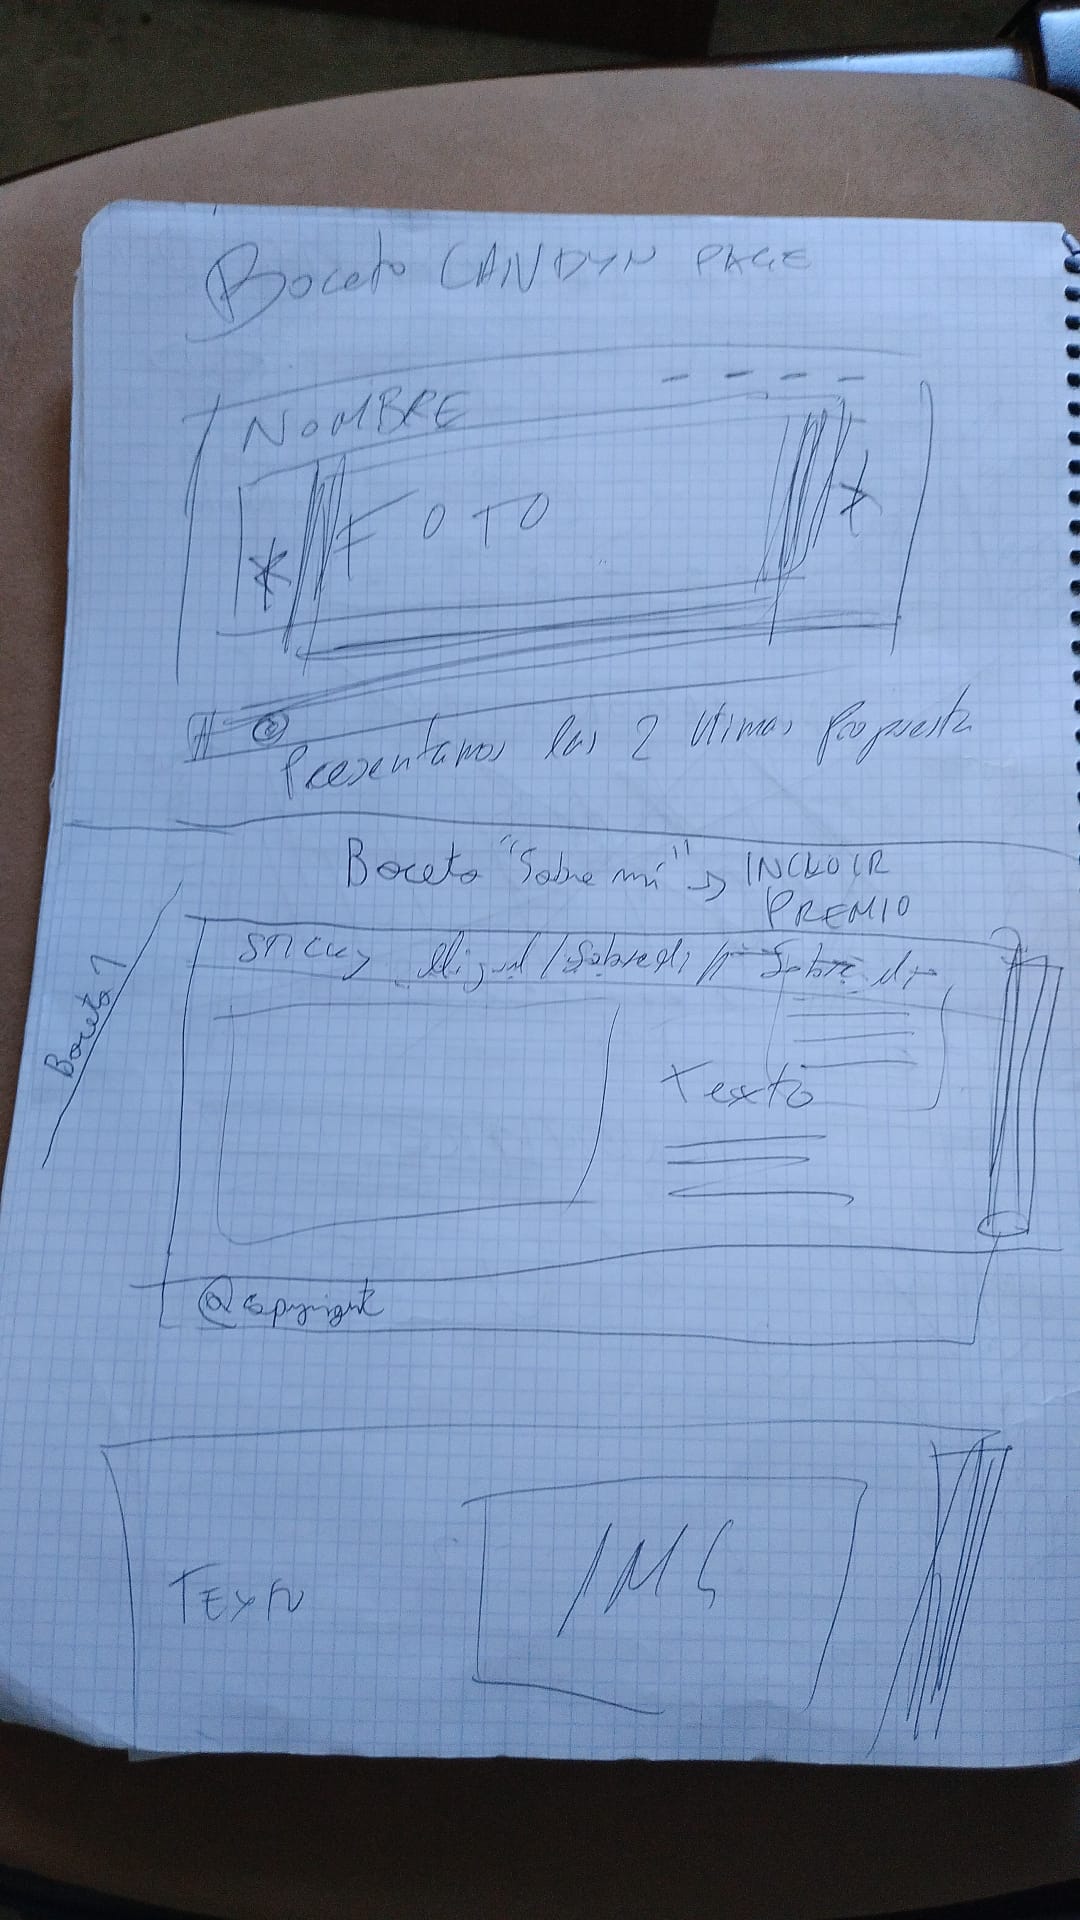 Boceto LANDYN PAGE
NOMBRE
FOTO
Presentamos las 2 Utimas Propuesta
Boceto "Sobre mi" → INCLUIR
PREMIO
Boceto 1
STICKY
Texto
@copyright
TEXTO
IMG